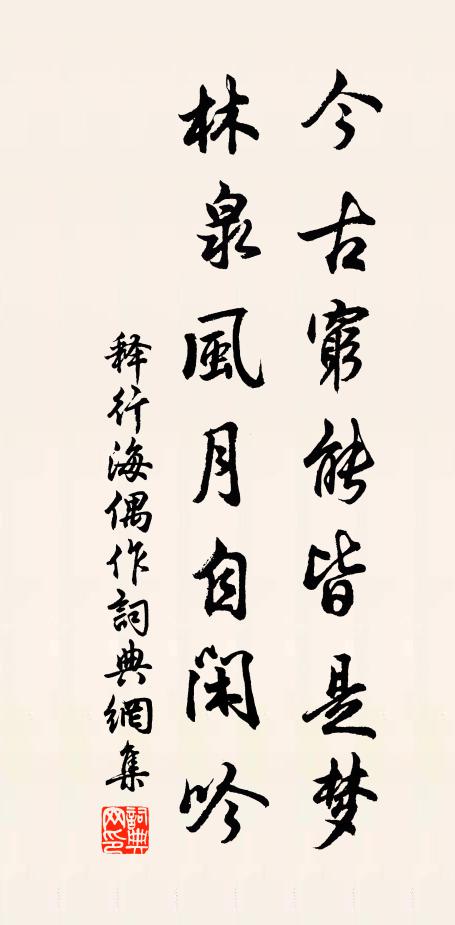 今古窮能皆是梦
林泉風月自閑吟
释行海偶作詞典網集
詞典网印